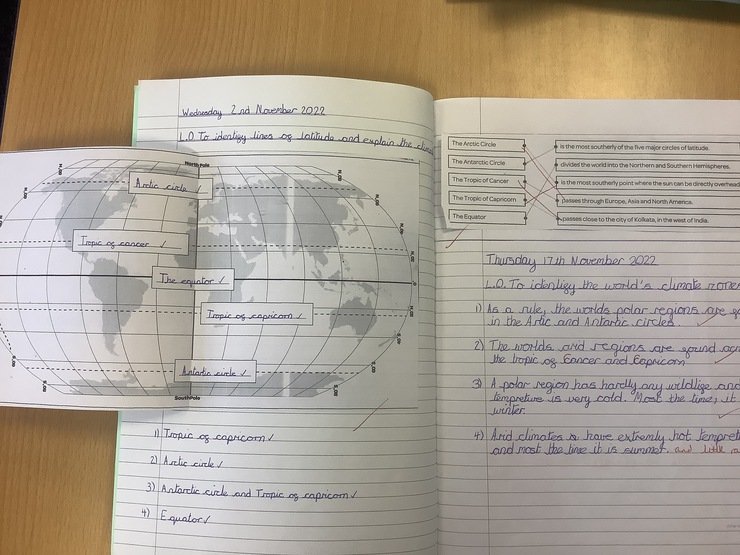 Wednesday 2nd November 2022
L.O. To identify lines of latitude and explain the
North Pole
Arctic circle
Tropic of cancer
The equator
Tropic of capricorn
Antartic circle
South Pole
1) Tropic of capricorn
2) Arctic circle
3) Antarctic circle and Tropic of capricorn
4) Equator
The Arctic Circle
The Antarctic Circle
The Tropic of Cancer
The Tropic of Capricorn
The Equator
is the most southerly of the five major circles of latitude.
divides the world into the Northern and Southern Hemispheres.
is the most southerly point where the sun can be directly overhead
passes through Europe, Asia and North America.
passes close to the city of Kolkata, in the west of India.
Thursday 17th November 2022
L.O. To identify the world's climate zones
1) As a rule, the worlds polar regions are
in the Artic and Antartic circles.
2) The worlds arid regions are found
the tropic of Cancer and Capricorn
3) A polar region has hardly any wildlife and
tempretive is very cold. Most the time, it
winter.
4) Arid climates is have extremly hot
and most the time it is summer. and little